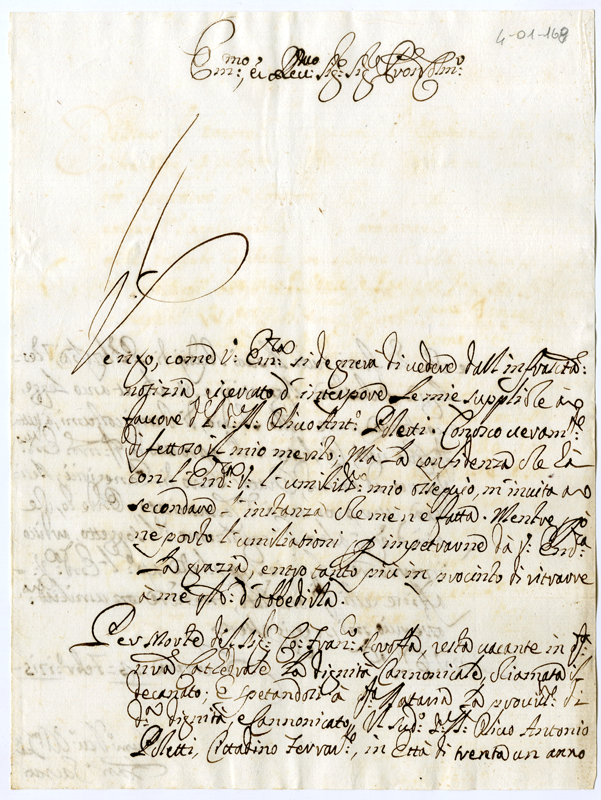 4-01-168
Em:mo, e Rev:mo Sig:r Sig:r Pron Colmo:
Vengo, come V: Em:za si degnerà di vedere dall' infrascta:
notizia, ricercato d' interpore le mie suppliche à
favore del Olivo Ant:o Poletti. Conosco veram:te
difettoso il mio merito, Mà la confidenza che hà
con l' Em:za V: l' umiliss:mo mio osseqio, m' invita a
secondare l' instanza che me n' è fatta. Mentre
nè porto l' umiliationi per impetrarne dà V: Em:za
La grazia, entro tanto più in procinto di ritrarre
à me d' obbedirla.
Per Morte del Sig:r Fran:co resta vacante in
Cathedrale La dignità Canonicale, chiamata di
decanato; e spetandosi à Dataria La
d:a dignità, e Cannonicato, Il sud:o Olivo Antonio
Poletti, Cittadino Ferrar:e, in Età di trenta un anno